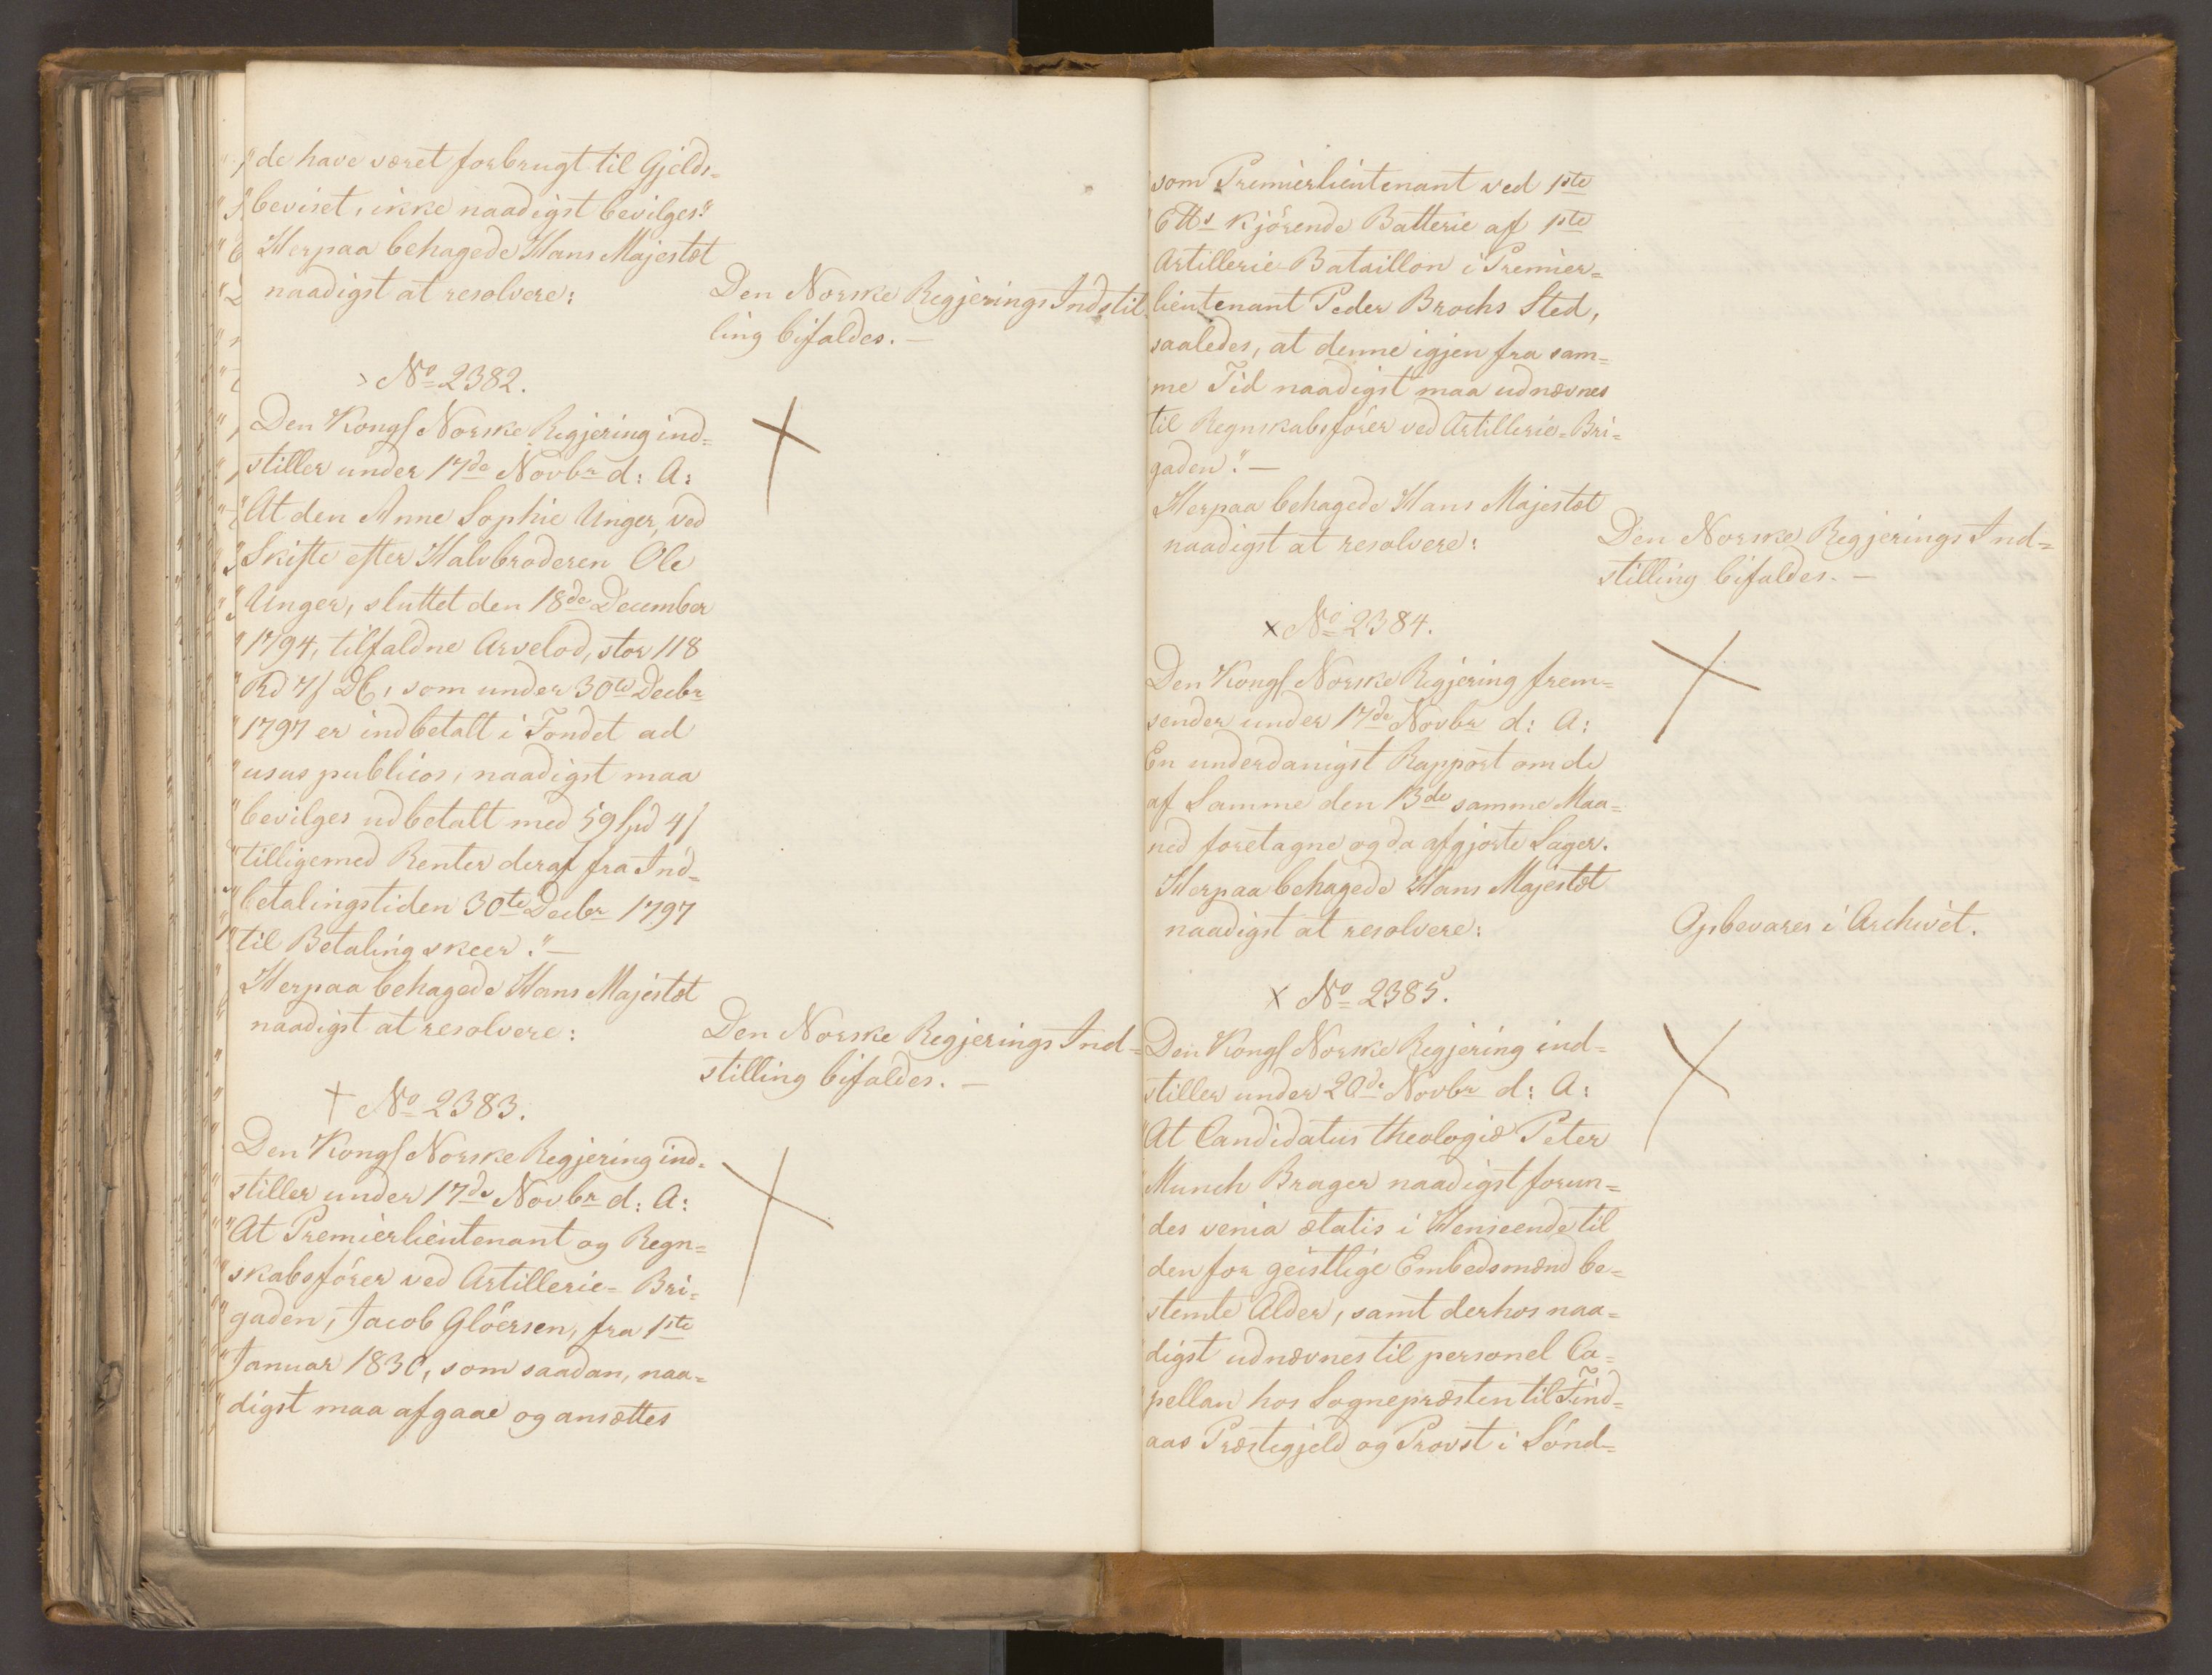 "de have været forbrugt til Gjelds=
beviset, ikke naadigst bevilges."
Herpaa behagede Hans Majestæt
naadigst at resolvere:
Den Norske Regjerings Indstil=
ling bifaldes.—
No 2382.
Den Kongl Norske Regjering ind=
stiller under 17de Novbr d: A:
"At den Anne Sophie Unger, ved
"Skifte efter Halvbroderen Ole
"Unger, sluttet den 18de December
"1794, tilfaldne Arvelod, stor 118
"Rd 7/ DC, som under 30te Decbr
"1797 er indbetalt i Fondet ad
"usus publicos, naadigst maa
"bevilges udbetalt med 59 Spd 4/
"tilligemed Renter deraf fra Ind=
"betalingstiden 30te Decbr 1797
"til Betaling skeer."—
Herpaa behagede Hans Majestæt
naadigst at resolvere:
Den Norske Regjerings Ind=
stilling bifaldes.—
+ No 2383.
Den Kongl Norske Regjering ind=
stiller under 17de Novbr d: A:
"At Premierlieutenant og Regn=
"skabsfører ved Artillerie=Bri=
"gaden, Jacob Gløersen, fra 1ste
"Januar 1830, som saadan, naa=
"digst maa afgaae og ansættes
som Premierlieutenant ved 1ste
6 ttbs Kjørende Batterie af 1ste
Artillerie-Bataillon i Premier=
lieutenant Peder Brochs Sted,
saaledes, at denne igjen fra sam=
me Tid naadigst maa udnævnes
til Regnskabsfører ved Artillerie=Bri=
gaden."—
Herpaa behagede Hans Majestæt
naadigst at resolvere:
Den Norske Regjerings Ind=
stilling bifaldes.—
x No 2384.
Den Kongl Norske Regjering frem=
sender under 17de Novbr d: A:
En underdanigst Rapport om de
af Samme den 13de samme Maa=
ned foretagne og da afgjorte Sager.
Herpaa behagede Hans Majestæt
naadigst at resolvere:
Opbevares i Archivet.
x No 2385.
Den Kongl Norske Regjering ind=
stiller under 20de Novbr d: A:
"At Candidatus theologiæ Peter
Munch Brager naadigst forun=
des venia ætatis i Henseende til
den for geistlige Embedsmænd be=
stemte Alder, samt derhos naa=
digst udnævnes til personel Ca=
pellan hos Sognepræsten til Find=
aas Præstegjeld og Provst i Sønd=